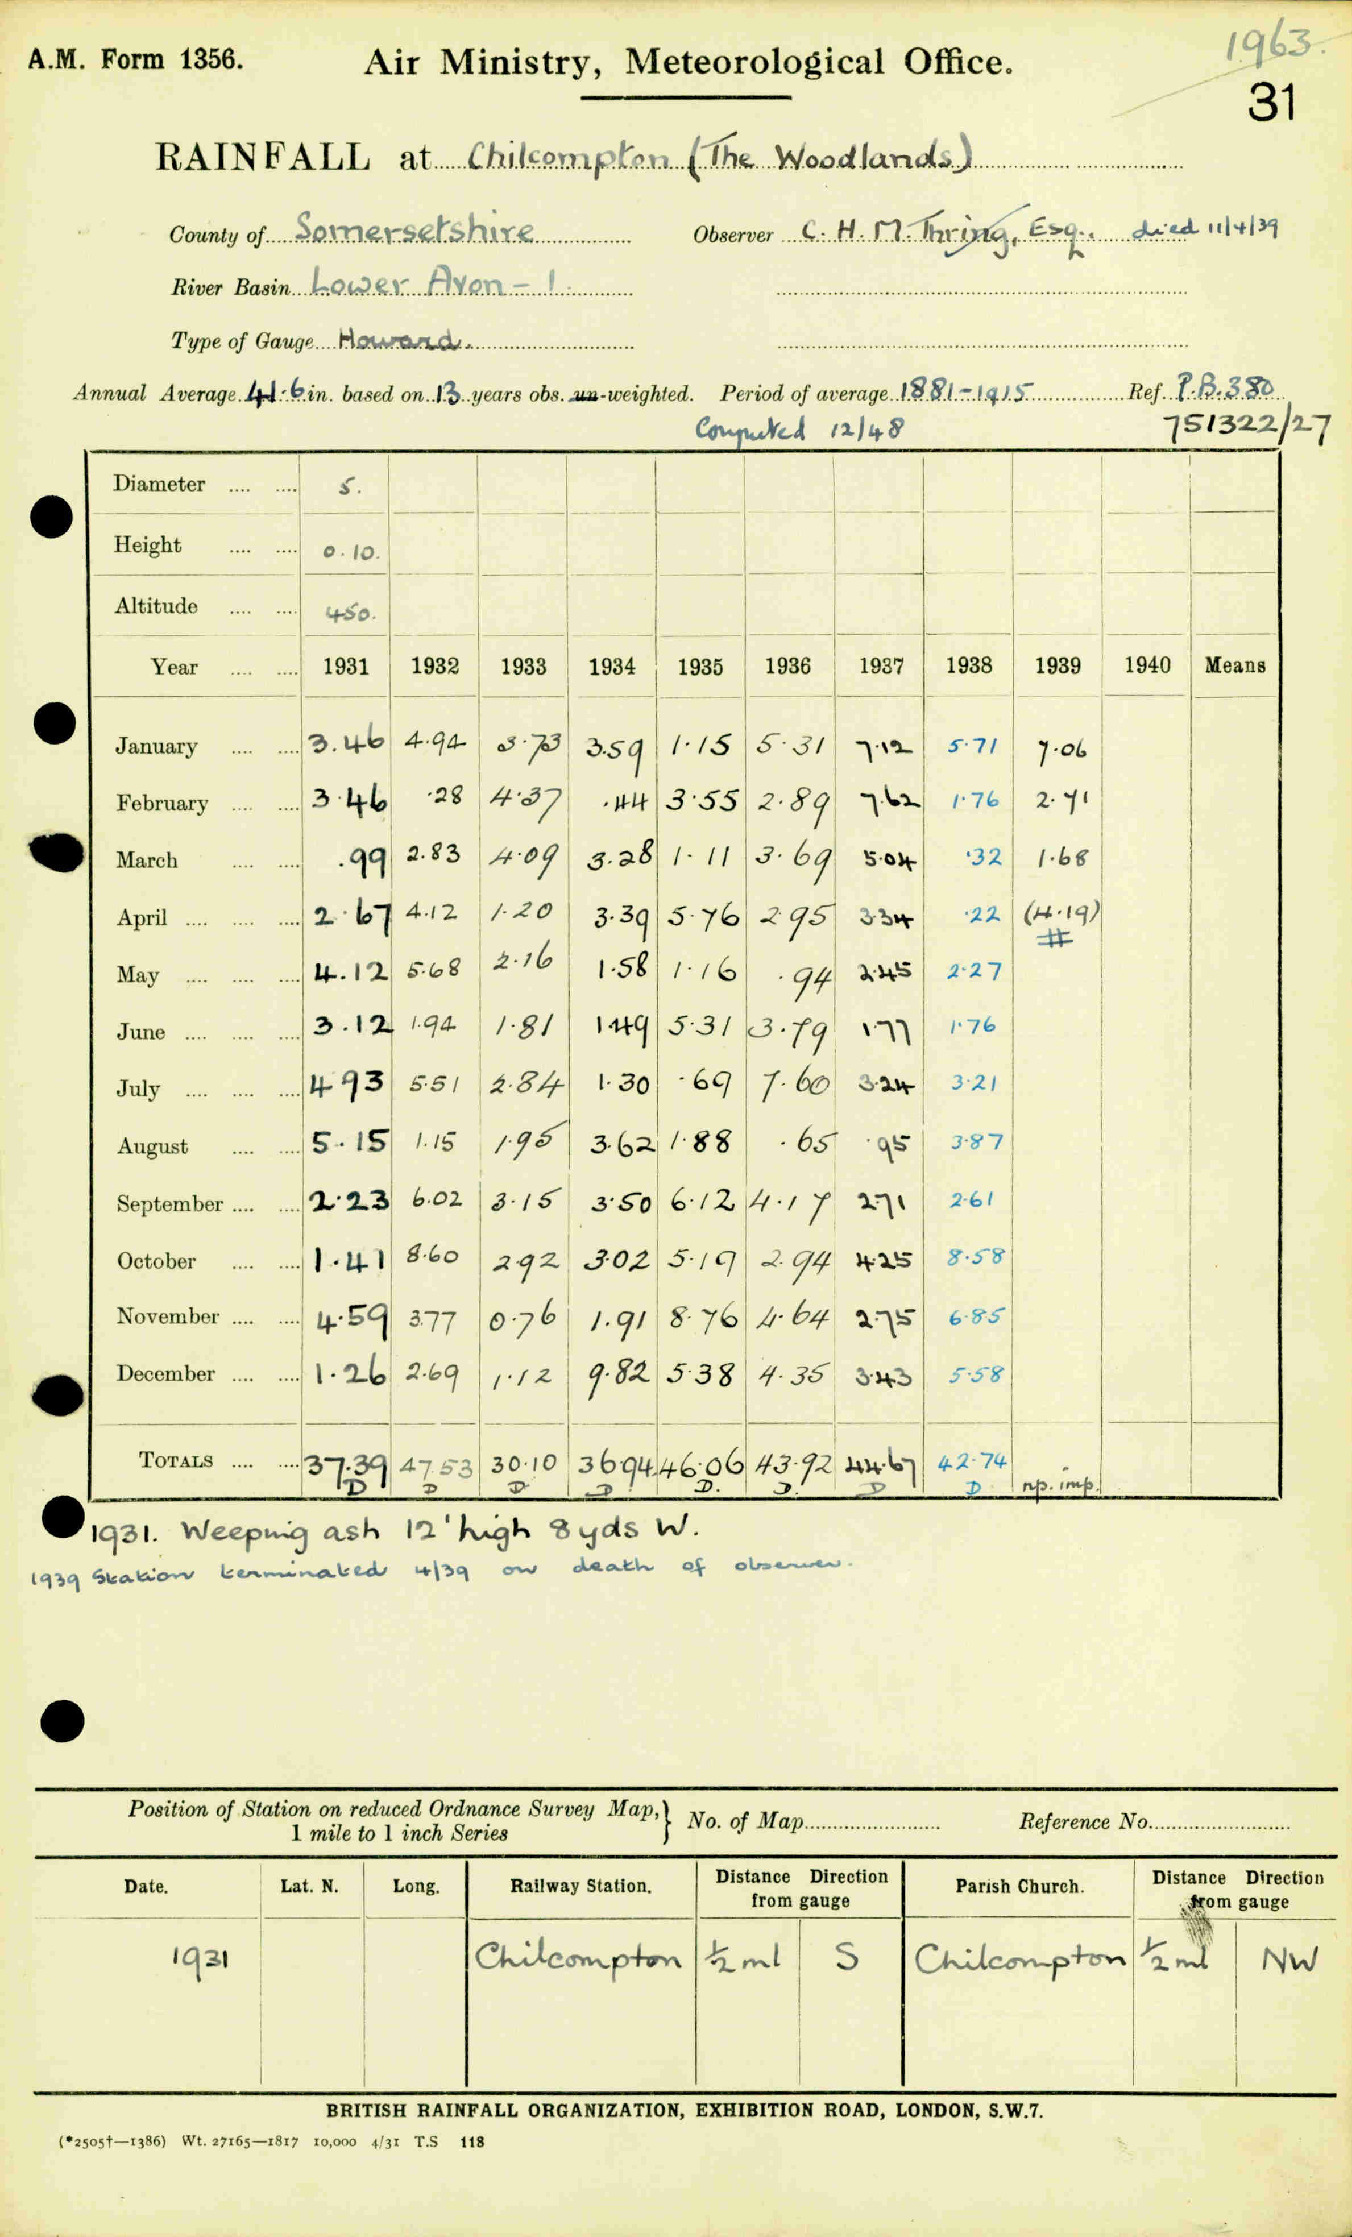 1963.
A.M. Form 1356. Air Ministry, Meteorological Office.
31
RAINFALL at Chilcompton (The Woodlands)
County of Somersetshire Observer C. H. M. Thring, Esq. died 11/4/39
River Basin Lower Avon - 1.
Type of Gauge Howard.
Annual Average 41.6 in. based on 13 years obs. un-weighted. Period of average 1881-1915 Ref. P.B.380
Computed 12/48 751322/27
Diameter .... .... 5.
Height .... .... 0.10.
Altitude .... .... 450.
Year .... .... 1931 1932 1933 1934 1935 1936 1937 1938 1939 1940 Means
January .... .... 3.46 4.94 3.73 3.59 1.15 5.31 7.12 5.71 7.06
February .... .... 3.46 .28 4.37 .44 3.55 2.89 7.62 1.76 2.71
March .... .... .99 2.83 4.09 3.28 1.11 3.69 5.04 .32 1.68
April .... .... .... 2.67 4.12 1.20 3.39 5.76 2.95 3.34 .22 (4.19)
#
May .... .... .... 4.12 5.68 2.16 1.58 1.16 .94 2.45 2.27
June .... .... .... 3.12 1.94 1.81 1.49 5.31 3.79 1.77 1.76
July .... .... .... 4.93 5.51 2.84 1.30 .69 7.60 3.24 3.21
August .... .... 5.15 1.15 1.95 3.62 1.88 .65 .95 3.87
September .... .... 2.23 6.02 3.15 3.50 6.12 4.17 2.71 2.61
October .... .... 1.41 8.60 2.92 3.02 5.19 2.94 4.25 8.58
November .... .... 4.59 3.77 0.76 1.91 8.76 4.64 2.75 6.85
December .... .... 1.26 2.69 1.12 9.82 5.38 4.35 3.43 5.58
TOTALS .... .... 37.39 47.53 30.10 36.94 46.06 43.92 44.67 42.74
D D D D D. D. D D np. imp.
1931. Weeping ash 12' high 8yds W.
1939 Station terminated 4/39 on death of observer.
Position of Station on reduced Ordnance Survey Map, } No. of Map Reference No.
1 mile to 1 inch Series
Date. Lat. N. Long. Railway Station. Distance Direction from gauge Parish Church. Distance Direction from gauge
1931 Chilcompton ½ ml S Chilcompton ½ ml NW
BRITISH RAINFALL ORGANIZATION, EXHIBITION ROAD, LONDON, S.W.7.
(*2505†—1386) Wt. 27165—1817 10,000 4/31 T.S 118